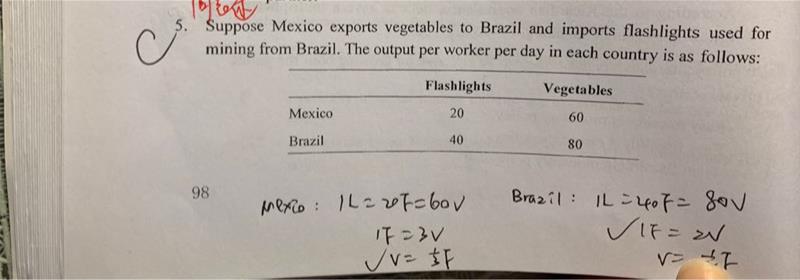 5. Suppose Mexico exports vegetables to Brazil and imports flashlights used for
mining from Brazil. The output per worker per day in each country is as follows:
Flashlights Vegetables
Mexico 20 60
Brazil 40 80
98
Mexico : 1L = 20F = 60V
1F = 3V
✓V = ⅓F
Brazil : 1L = 40F = 80V
✓1F = 2V
V =